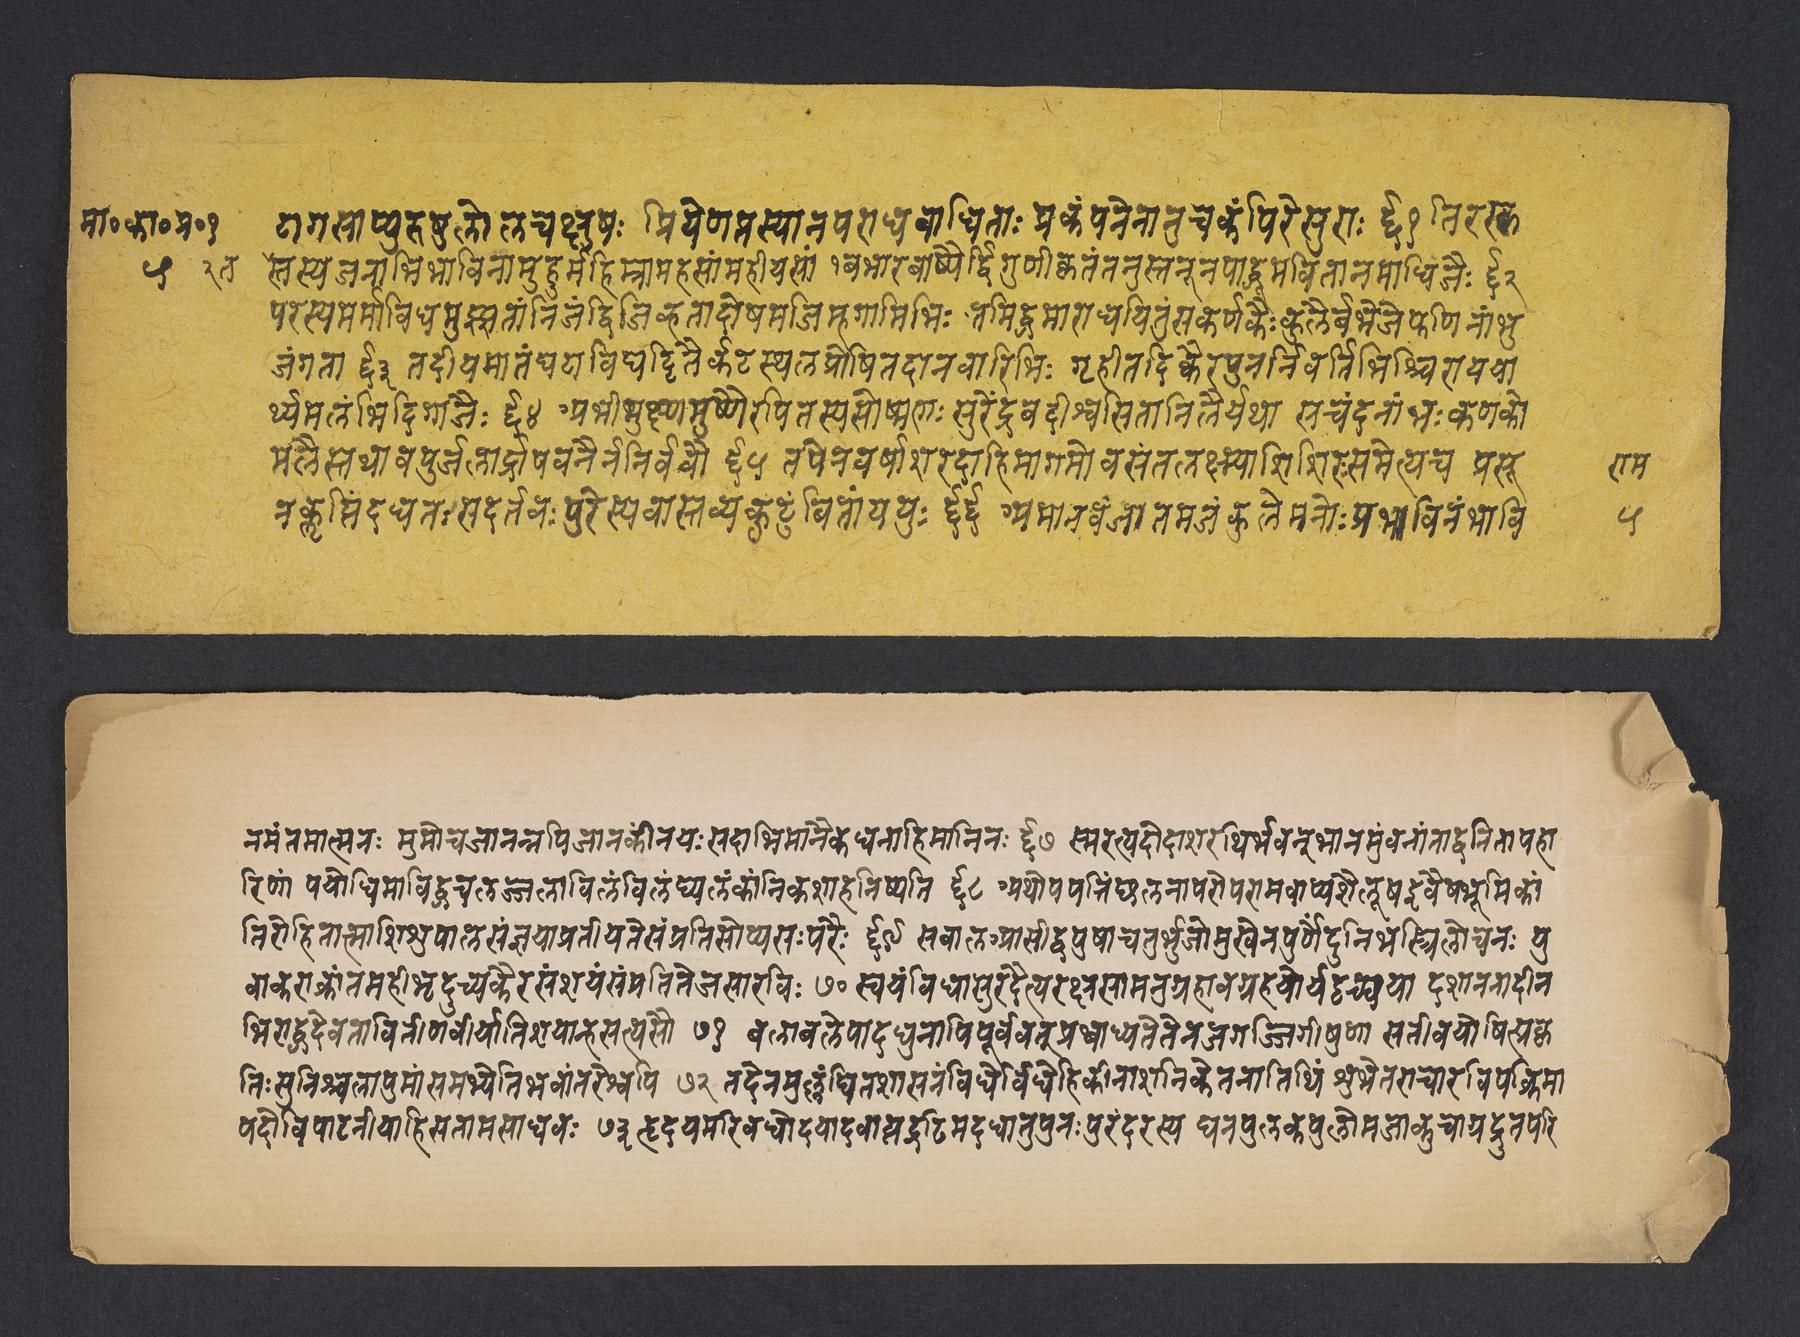 मा॰का॰प्र॰१
रागसाप्युरुषुलोलचक्षुषः प्रियेणतस्यानपराधबाधिताः प्रकंपनेनानुचकंपिरेसुराः ६१ तिरस्कृ
५ २त तस्यजनाभिभाविनामुहुर्महिम्नामहसांमहीयसां १बभारबाष्पैर्द्विगुणीकृतंतनुस्तनूनपाद्धूमवितानमाधिजैः ६२
परस्यमर्माविधमुझ्झतांनिजंद्विजिह्वतादोषमजिह्मगामिभिः तमिद्धमाराधयितुंसकर्णकैःकुलैर्नभेजेफणिनांभु
जंगता ६३ तदीयमातंघटाविघट्टितैःकटस्थलप्रोषितदानवारिभिः गृहीतदिक्कैरपुनर्निवर्तिभिश्चिरायया
र्थ्यमलंभिदिग्गजैः ६४ अभीक्ष्णमुष्णैरपितस्यसोष्मणः सुरेंद्रबंदीश्वसितानिलैर्यथा सचंदनांभःकणको
मलैस्तथावपुर्जलार्द्रापवनैर्ननिर्ववौ ६५ तपेनवर्षाशरदाहिमागमोवसंतलक्ष्म्याशिशिरःसमेत्यच प्रसू राम
नकॢप्तिंदधतःसदर्तवःपुरेस्यवास्तव्यकुटुंबितांययुः ६६ अमानवंजातमजंकुलेमनोःप्रभाविनंभावि ५
नमंतमात्मनः मुमोचजानन्नपिजानकींनयःसदाभिमानैकधनाहिमानिनः ६७ स्मरत्यदोदाशरथिर्भवन्भवानमुंवनांताद्वनितापहा
रिणं पयोधिमाविद्धचलज्जलाविलंविलंघ्यलंकांनिकशाहनिष्यति ६८ अथोपपत्तिंछलनापरोपरामवाप्यशैलूषइवैषभूमिकां
तिरोहितात्माशिशुपालसंज्ञयाप्रतीयतेसंप्रतिसोप्यसःपरैः ६९ सबालआसीद्वपुषाचतुर्भुजोमुखेनपूर्णेंदुनिभस्त्रिलोचनः यु
वाकराक्रांतमहीभृदुच्चकैरसंशयंसंप्रतितेजसारविः ७० स्वयंविधासुरदैत्यरक्षसामनुग्रहावग्रहयोर्यदृच्छया दशाननादीन
भिराद्धदेवतावितीर्णवीर्यातिशयान्हसत्यसौ ७१ बलावलेपादधुनापिपूर्ववत्प्रबाध्यतेतेनजगज्जिगीषुणा सतीवयोषित्प्रकृ
तिःसुनिश्चलापुमांसमभ्येतिभवांतरेश्वपि ७२ तदेनमुल्लंघितशासनंविधेर्विधेहिकीनाशनिकेतनातिथिं शुभेतराचारविपक्त्रिमा
पदोविपाटनीयाहिसतामसाधवः ७३ हृदयमरिवधोदयादवाप्तद्रढिमदधातुपुनःपुरंदरस्य घनपुलकपुलोमजाकुचाग्रद्रुतपरि